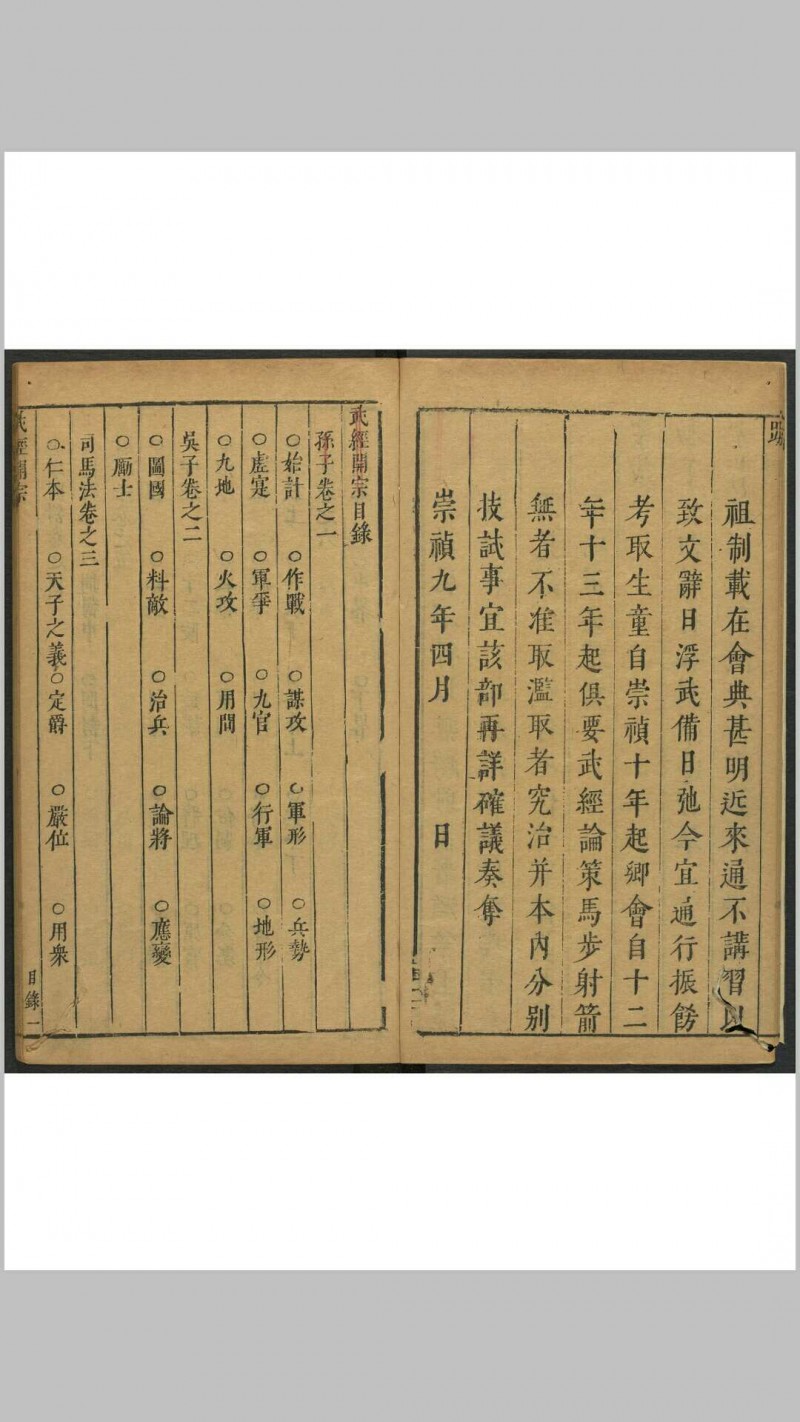 祖制載在會典甚明近來通不講習以
致文辭日浮武備日弛今宜通行振飭
考取生童自崇禎十年起鄉會自十二
年十三年起俱要武經論策馬步射箭
無者不准取濫取者究治并本内分别
技試事宜該部再詳確議奏奪
崇禎九年四月　　日
武經開宗目錄
孫子卷之一
○始計　○作戰　○謀攻　○軍形　○兵勢
○虛寔　○軍爭　○九官　○行軍　○地形
○九地　○火攻　○用間
吳子卷之二
○圖國　○料敵　○治兵　○論將　○應變
○勵士
司馬法卷之三
○仁本　○天子之義○定爵　○嚴位　○用衆
武經開宗　目錄　一